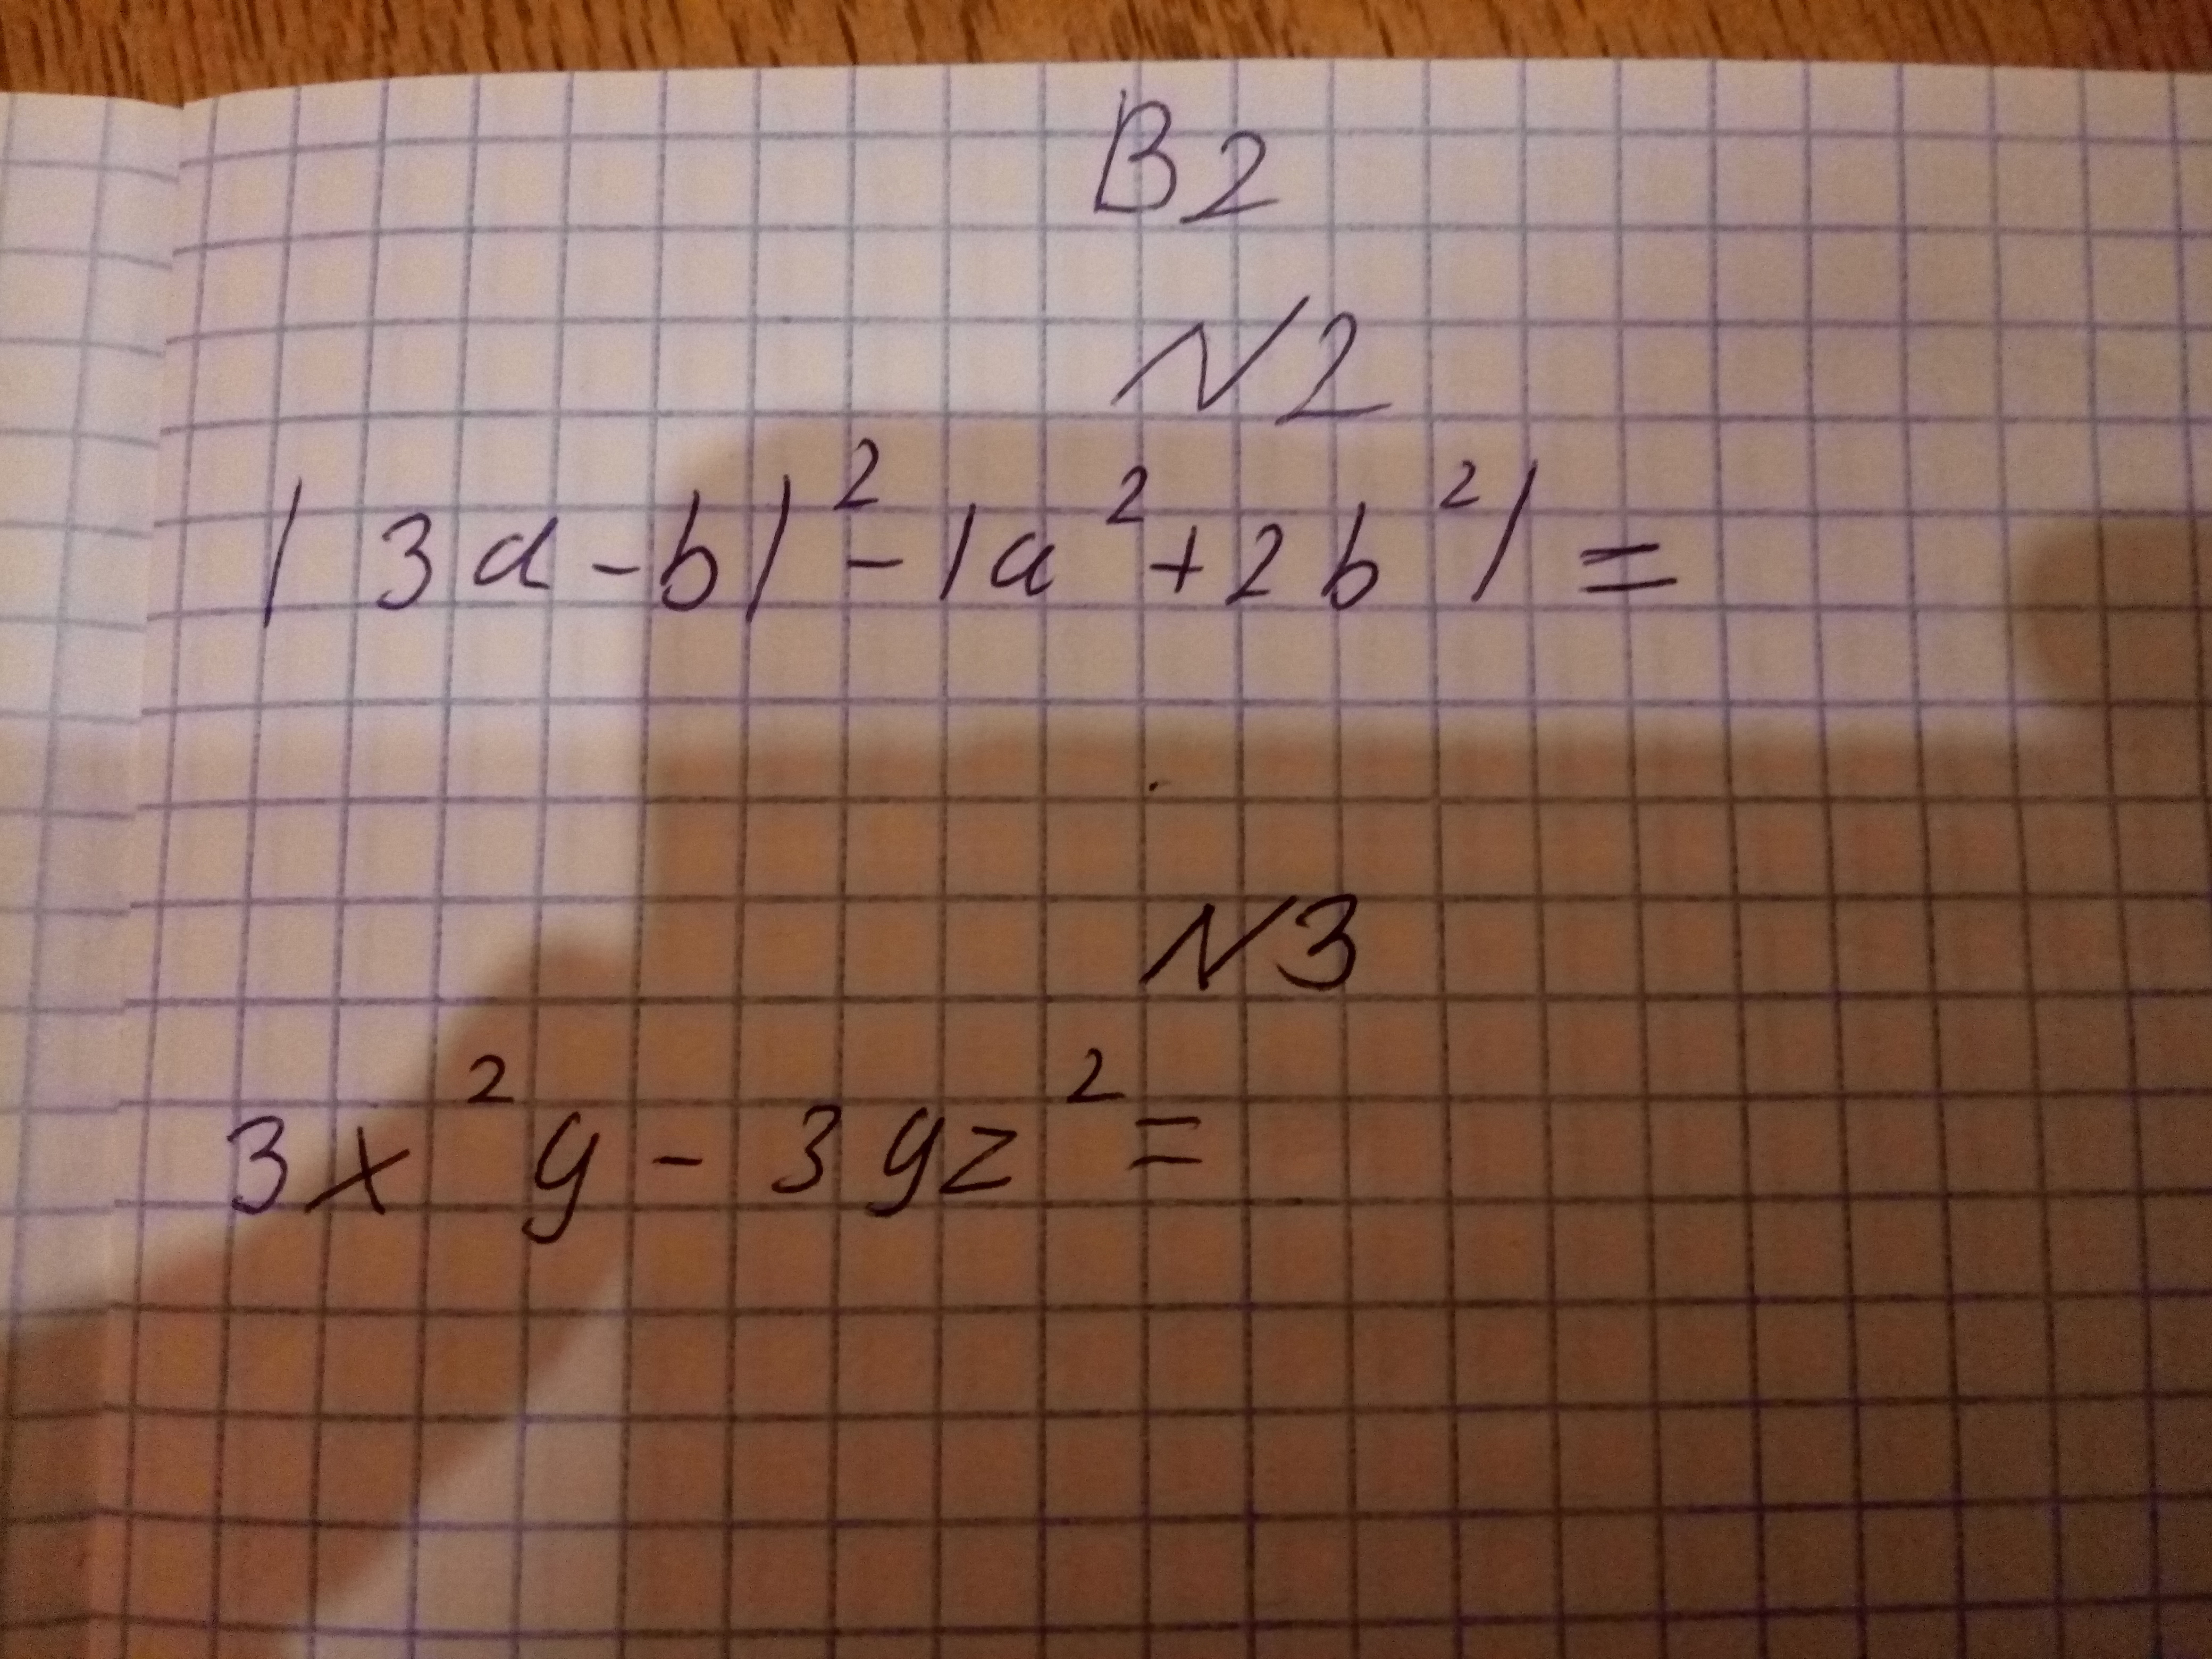 В2
N2
|3a-b|²-|a²+2b²|=
N3
3x²y-3yz²=